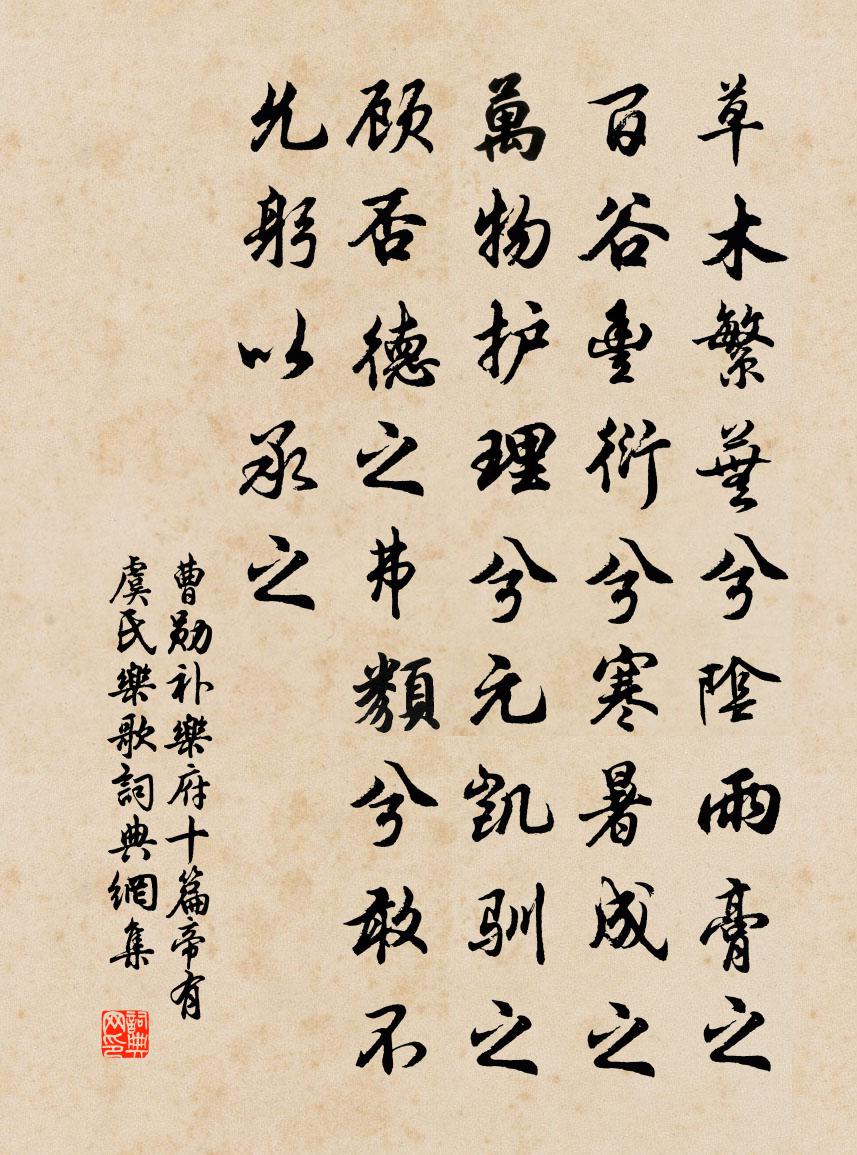 草木繁蕪兮陰雨膏之
百谷豐衍兮寒暑成之
萬物护理兮元凯驯之
顾否德之弗類兮敢不
允躬以承之
曹勋补樂府十篇帝有
虞氏樂歌詞典網集
詞典网印